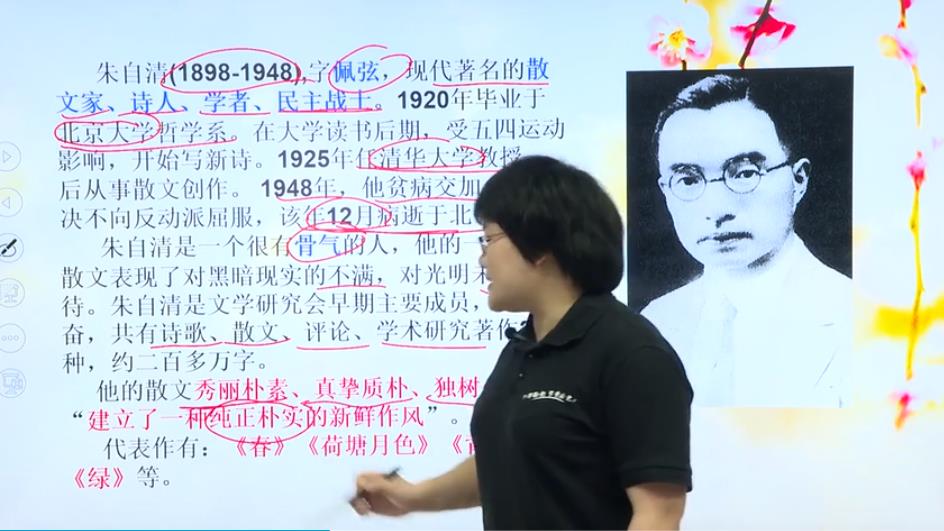 朱自清(1898-1948),字佩弦，现代著名的散
文家、诗人、学者、民主战士。1920年毕业于
北京大学哲学系。在大学读书后期，受五四运动
影响，开始写新诗。1925年任清华大学教授
后从事散文创作。 1948年，他贫病交加
决不向反动派屈服，该年12月病逝于北
朱自清是一个很有骨气的人，他的一
散文表现了对黑暗现实的不满，对光明
待。朱自清是文学研究会早期主要成员，
奋，共有诗歌、散文、评论、学术研究著作
种，约二百多万字。
他的散文秀丽朴素、真挚质朴、独树
“建立了一种纯正朴实的新鲜作风”。
代表作有：《春》《荷塘月色》《
《绿》等。